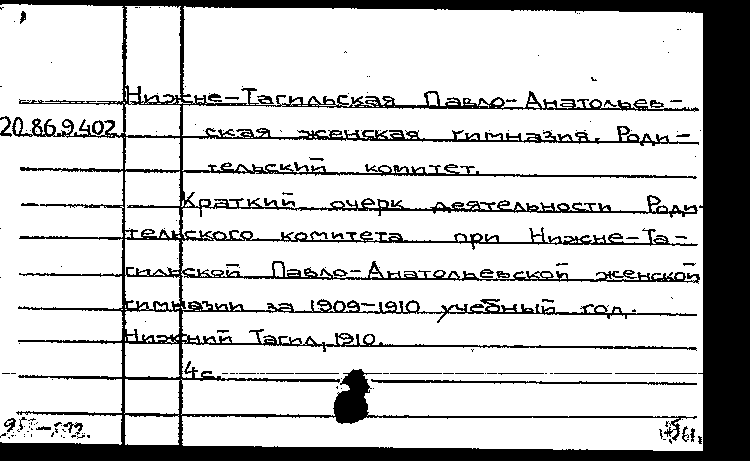 Нижне-Тагильская Павло-Анатольев-
20.86.9.402 ская женская гимназия. Роди-
тельский комитет.
Краткий очерк деятельности Роди-
тельского комитета при Нижне-Та-
гильской Павло-Анатольевской женской
гимназии за 1909-1910 учебный год.
Нижний Тагил, 1910.
4 с.